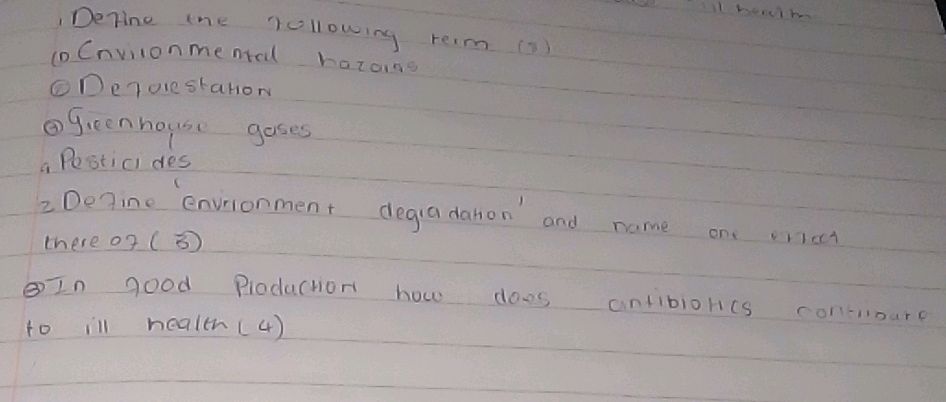 ill health
1. Define the following term (s)
① Environmental hazards
② Deforestation
③ Greenhouse gases
4. Pesticides
2 Define 'envrionment degradation' and name one effect
there of (3)
③ In food Production how does antibiotics contribute
to ill health (4)